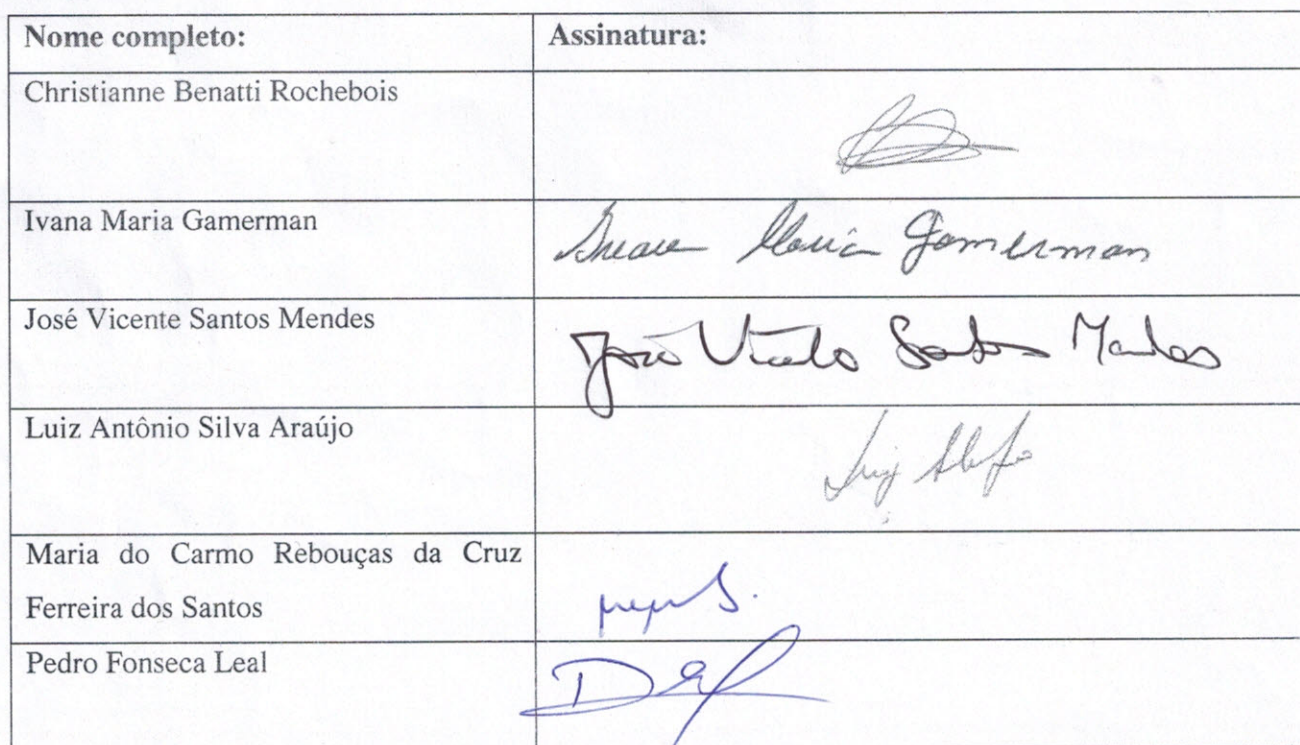 Nome completo: Assinatura:
Christianne Benatti Rochebois
Ivana Maria Gamerman
Maria Gamerman
José Vicente Santos Mendes
Santos Mendes
Luiz Antônio Silva Araújo
Luiz
Maria do Carmo Rebouças da Cruz
Ferreira dos Santos
Pedro Fonseca Leal